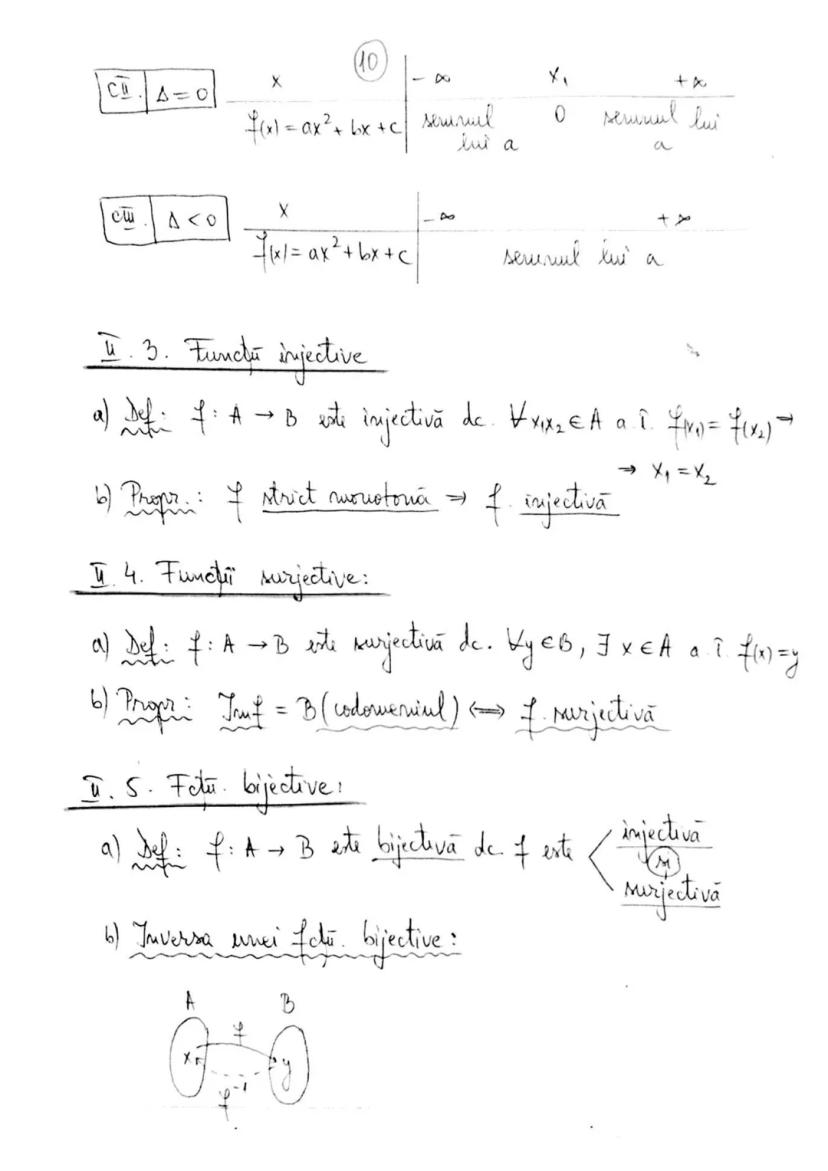 10
CII. Δ = 0 x -∞ x₁ +∞
f(x) = ax² + bx + c semnul lui a 0 semnul lui a
CIII. Δ < 0 x -∞ +∞
f(x) = ax² + bx + c semnul lui a
II. 3. Funcții injective
a) Def: f: A → B este injectivă dc. ∀x₁x₂ ∈ A a. î. f(x₁) = f(x₂) →
→ x₁ = x₂
b) Propr.: f strict monotonă ⇒ f. injectivă
II. 4. Funcții surjective:
a) Def: f: A → B este surjectivă dc. ∀y ∈ B, ∃ x ∈ A a. î. f(x) = y
b) Propr: Imf = B (codomeniul) ⟺ f. surjectivă
II. 5. Fcții. bijective:
a) Def: f: A → B este bijectivă dc. f este injectivă
și
surjectivă
b) Inversa unei fcții. bijective:
A B
f
x y
f⁻¹